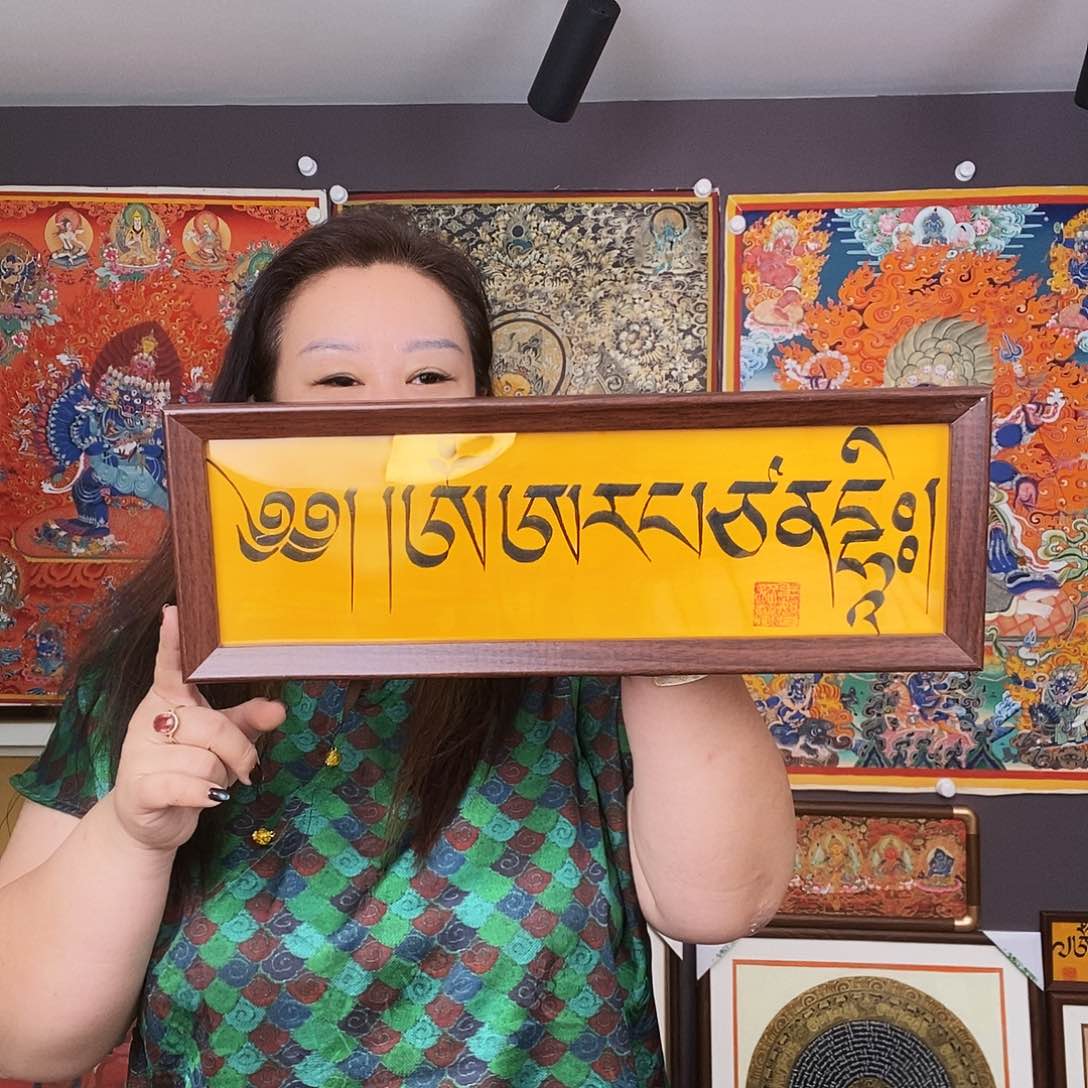 ༄༅། །ཨོཾཨརཔཙནདྷཱིཿ།